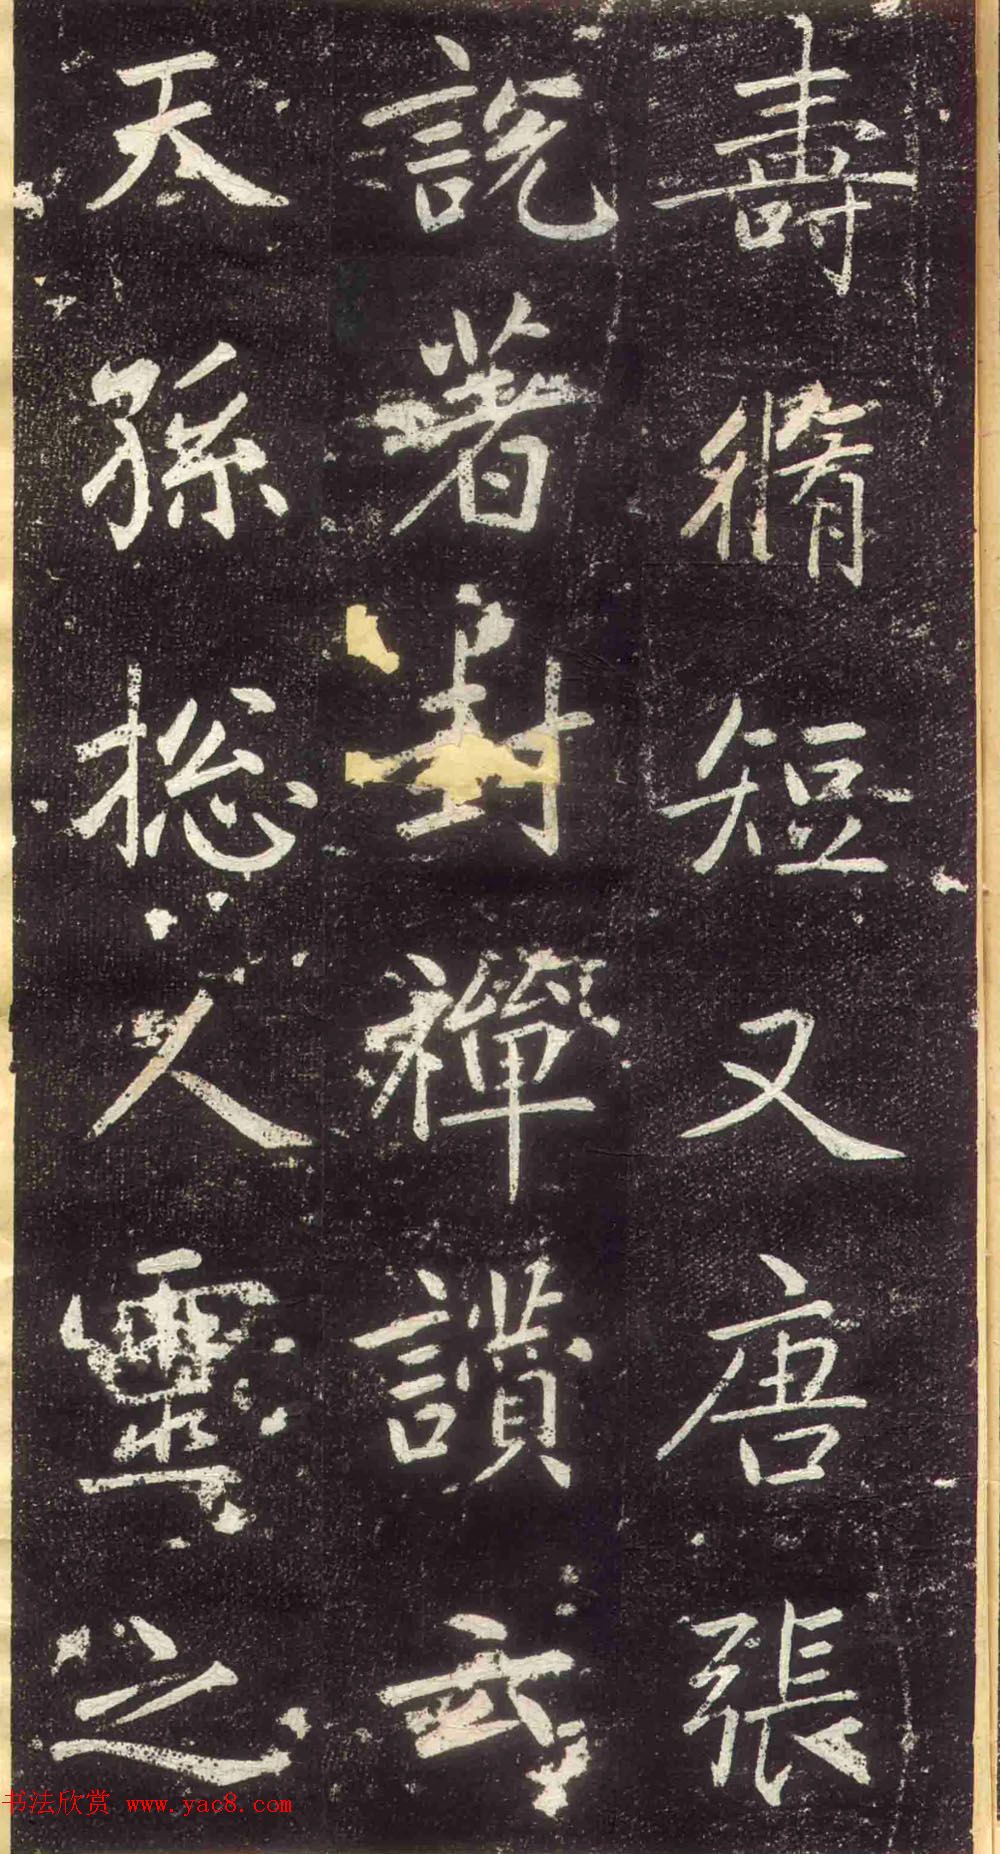 壽脩短又唐張
說著封禪讃云
天孫揔人靈之
书法欣赏 www.yac8.com